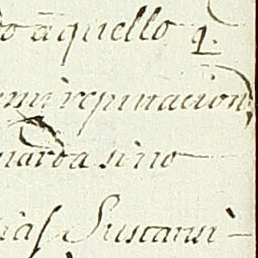 o aquello q.
mi reputacion,
uarda sino
ias Sustansi-